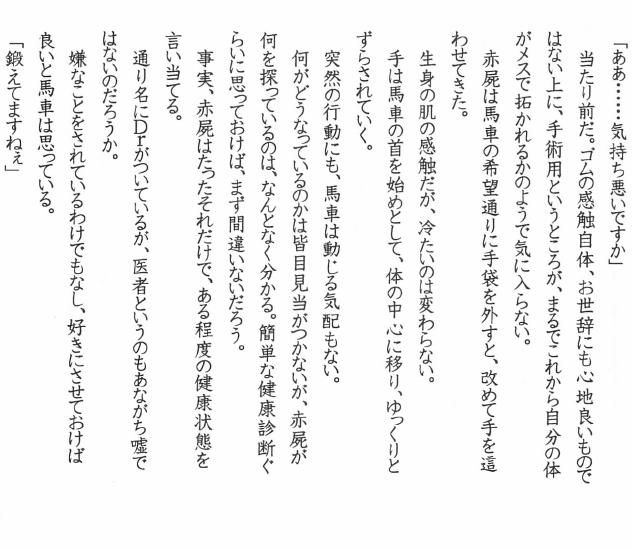 「ああ……気持ち悪いですか」
当たり前だ。ゴムの感触自体、お世辞にも心地良いもので
はない上に、手術用というところが、まるでこれから自分の体
がメスで拓かれるかのようで気に入らない。
赤屍は馬車の希望通りに手袋を外すと、改めて手を這
わせてきた。
生身の肌の感触だが、冷たいのは変わらない。
手は馬車の首を始めとして、体の中心に移り、ゆっくりと
ずらされていく。
突然の行動にも、馬車は動じる気配もない。
何がどうなっているのかは皆目見当がつかないが、赤屍が
何を探っているのは、なんとなく分かる。簡単な健康診断ぐ
らいに思っておけば、まず間違いないだろう。
事実、赤屍はたったそれだけで、ある程度の健康状態を
言い当てる。
通り名にDrがついているが、医者というのもあながち嘘で
はないのだろうか。
嫌なことをされているわけでもなし、好きにさせておけば
良いと馬車は思っている。
「鍛えてますねぇ」